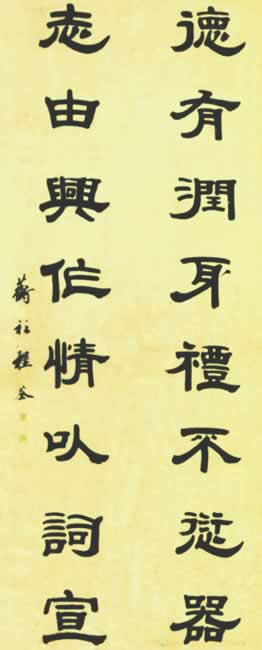 德有潤身禮不愆器
志由興作情以詞宣
蘅衫程荃